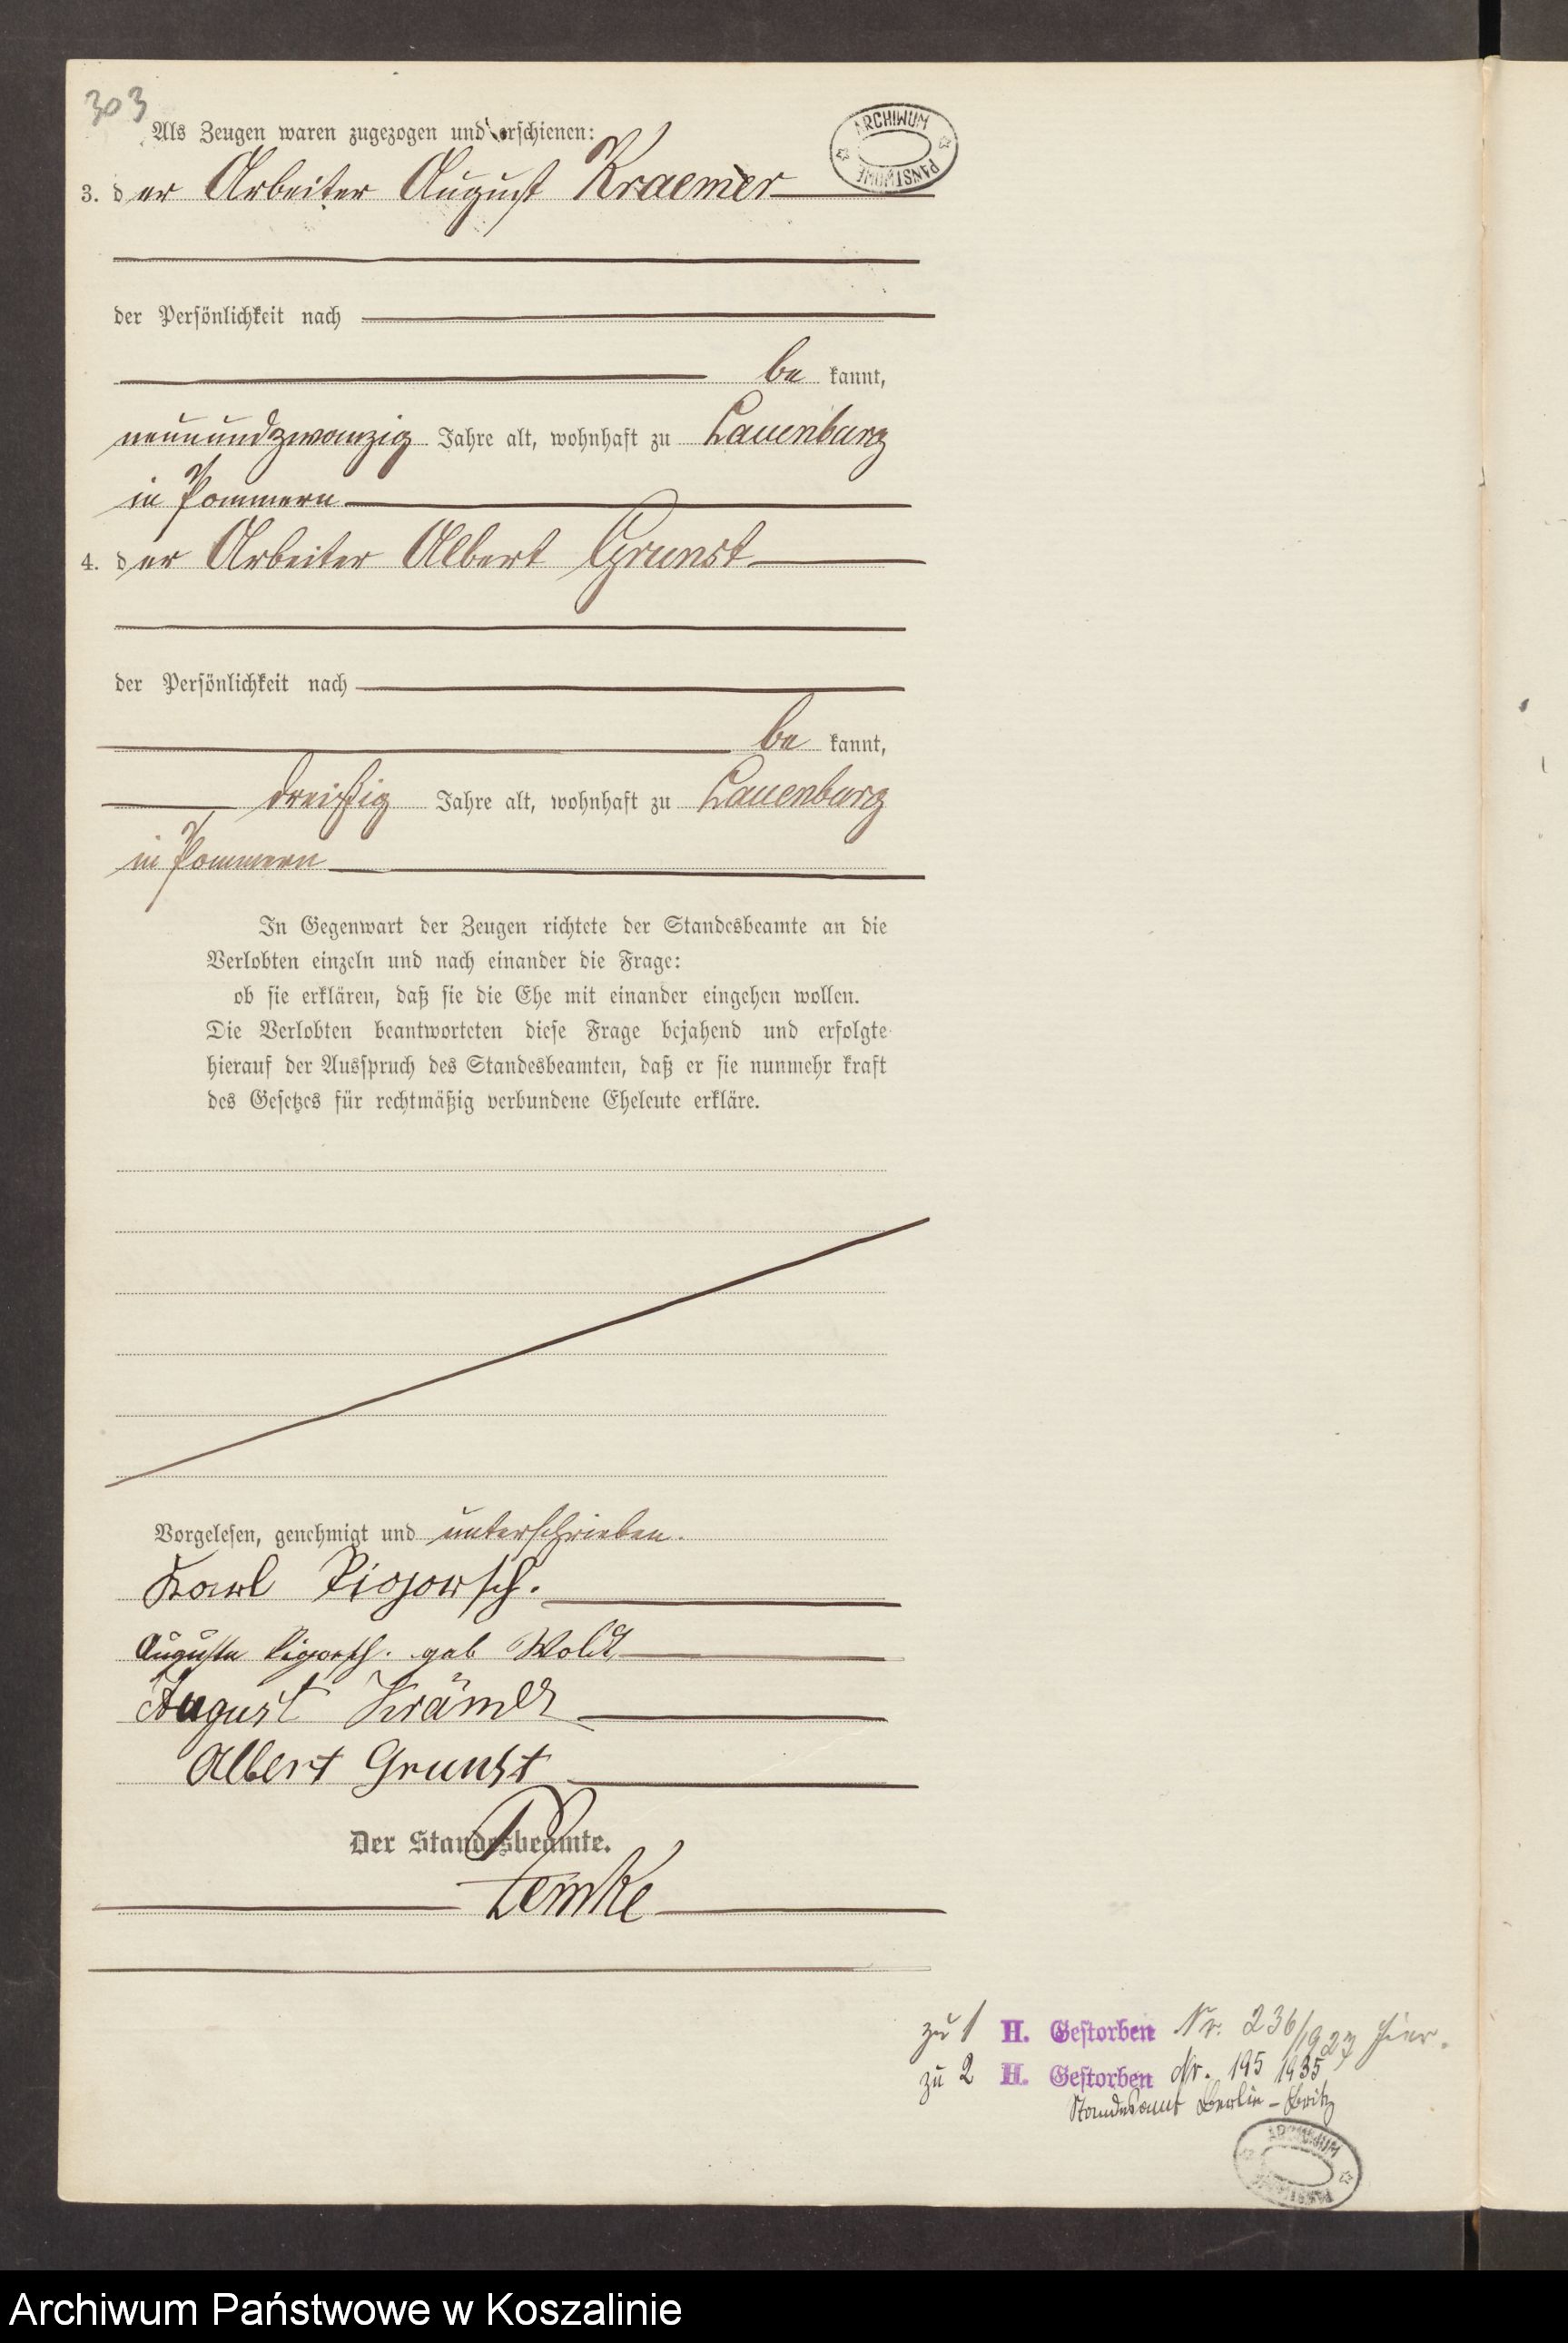 303
Als Zeugen waren zugezogen und erschienen:
ARCHIWUM PAŃSTWOWE
3. der Arbeiter August Kraemer
der Persönlichkeit nach
be kannt,
neunundzwanzig Jahre alt, wohnhaft zu Lauenburg
in Pommern
4. der Arbeiter Albert Grunst
der Persönlichkeit nach
be kannt,
dreißig Jahre alt, wohnhaft zu Lauenburg
in Pommern
In Gegenwart der Zeugen richtete der Standesbeamte an die
Verlobten einzeln und nach einander die Frage:
ob sie erklären, daß sie die Ehe mit einander eingehen wollen.
Die Verlobten beantworteten diese Frage bejahend und erfolgte
hierauf der Ausspruch des Standesbeamten, daß er sie nunmehr kraft
des Gesetzes für rechtmäßig verbundene Eheleute erkläre.
Vorgelesen, genehmigt und unterschrieben.
Karl Pigorsch.
Auguste Pigorsch. geb Woldt
August Krämer
Albert Grunst
Der Standesbeamte.
Lemke
zu 1 H. Gestorben Nr. 236/1927 hier.
zu 2 H. Gestorben Nr. 195 1935
Standesamt Berlin-Britz
ARCHIWUM PAŃSTWOWE
Archiwum Państwowe w Koszalinie